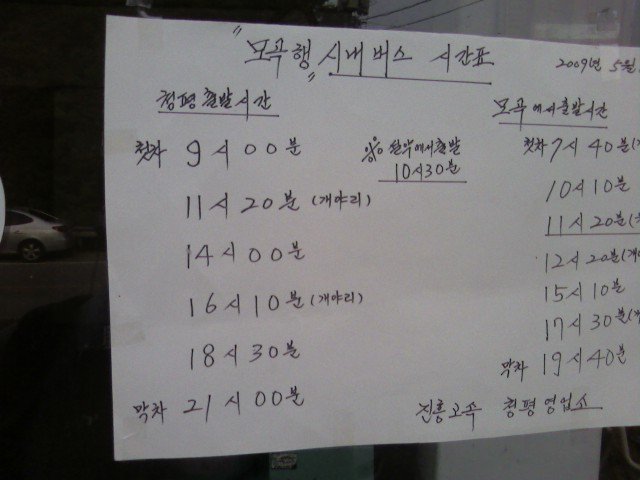 "모곡행" 시내버스 시간표
2009년 5월
청평출발시간
첫차 9시 00분
11시 20분 (개야리)
14시 00분
16시 10분 (개야리)
18시 30분
막차 21시 00분
10시30분
모곡에서출발시간
첫차 7시 40분(
10시 10분
11시 20분(
12시 20분(개야
15시 10분
17시 30분(
막차 19시 40분
진흥고속 청평영업소